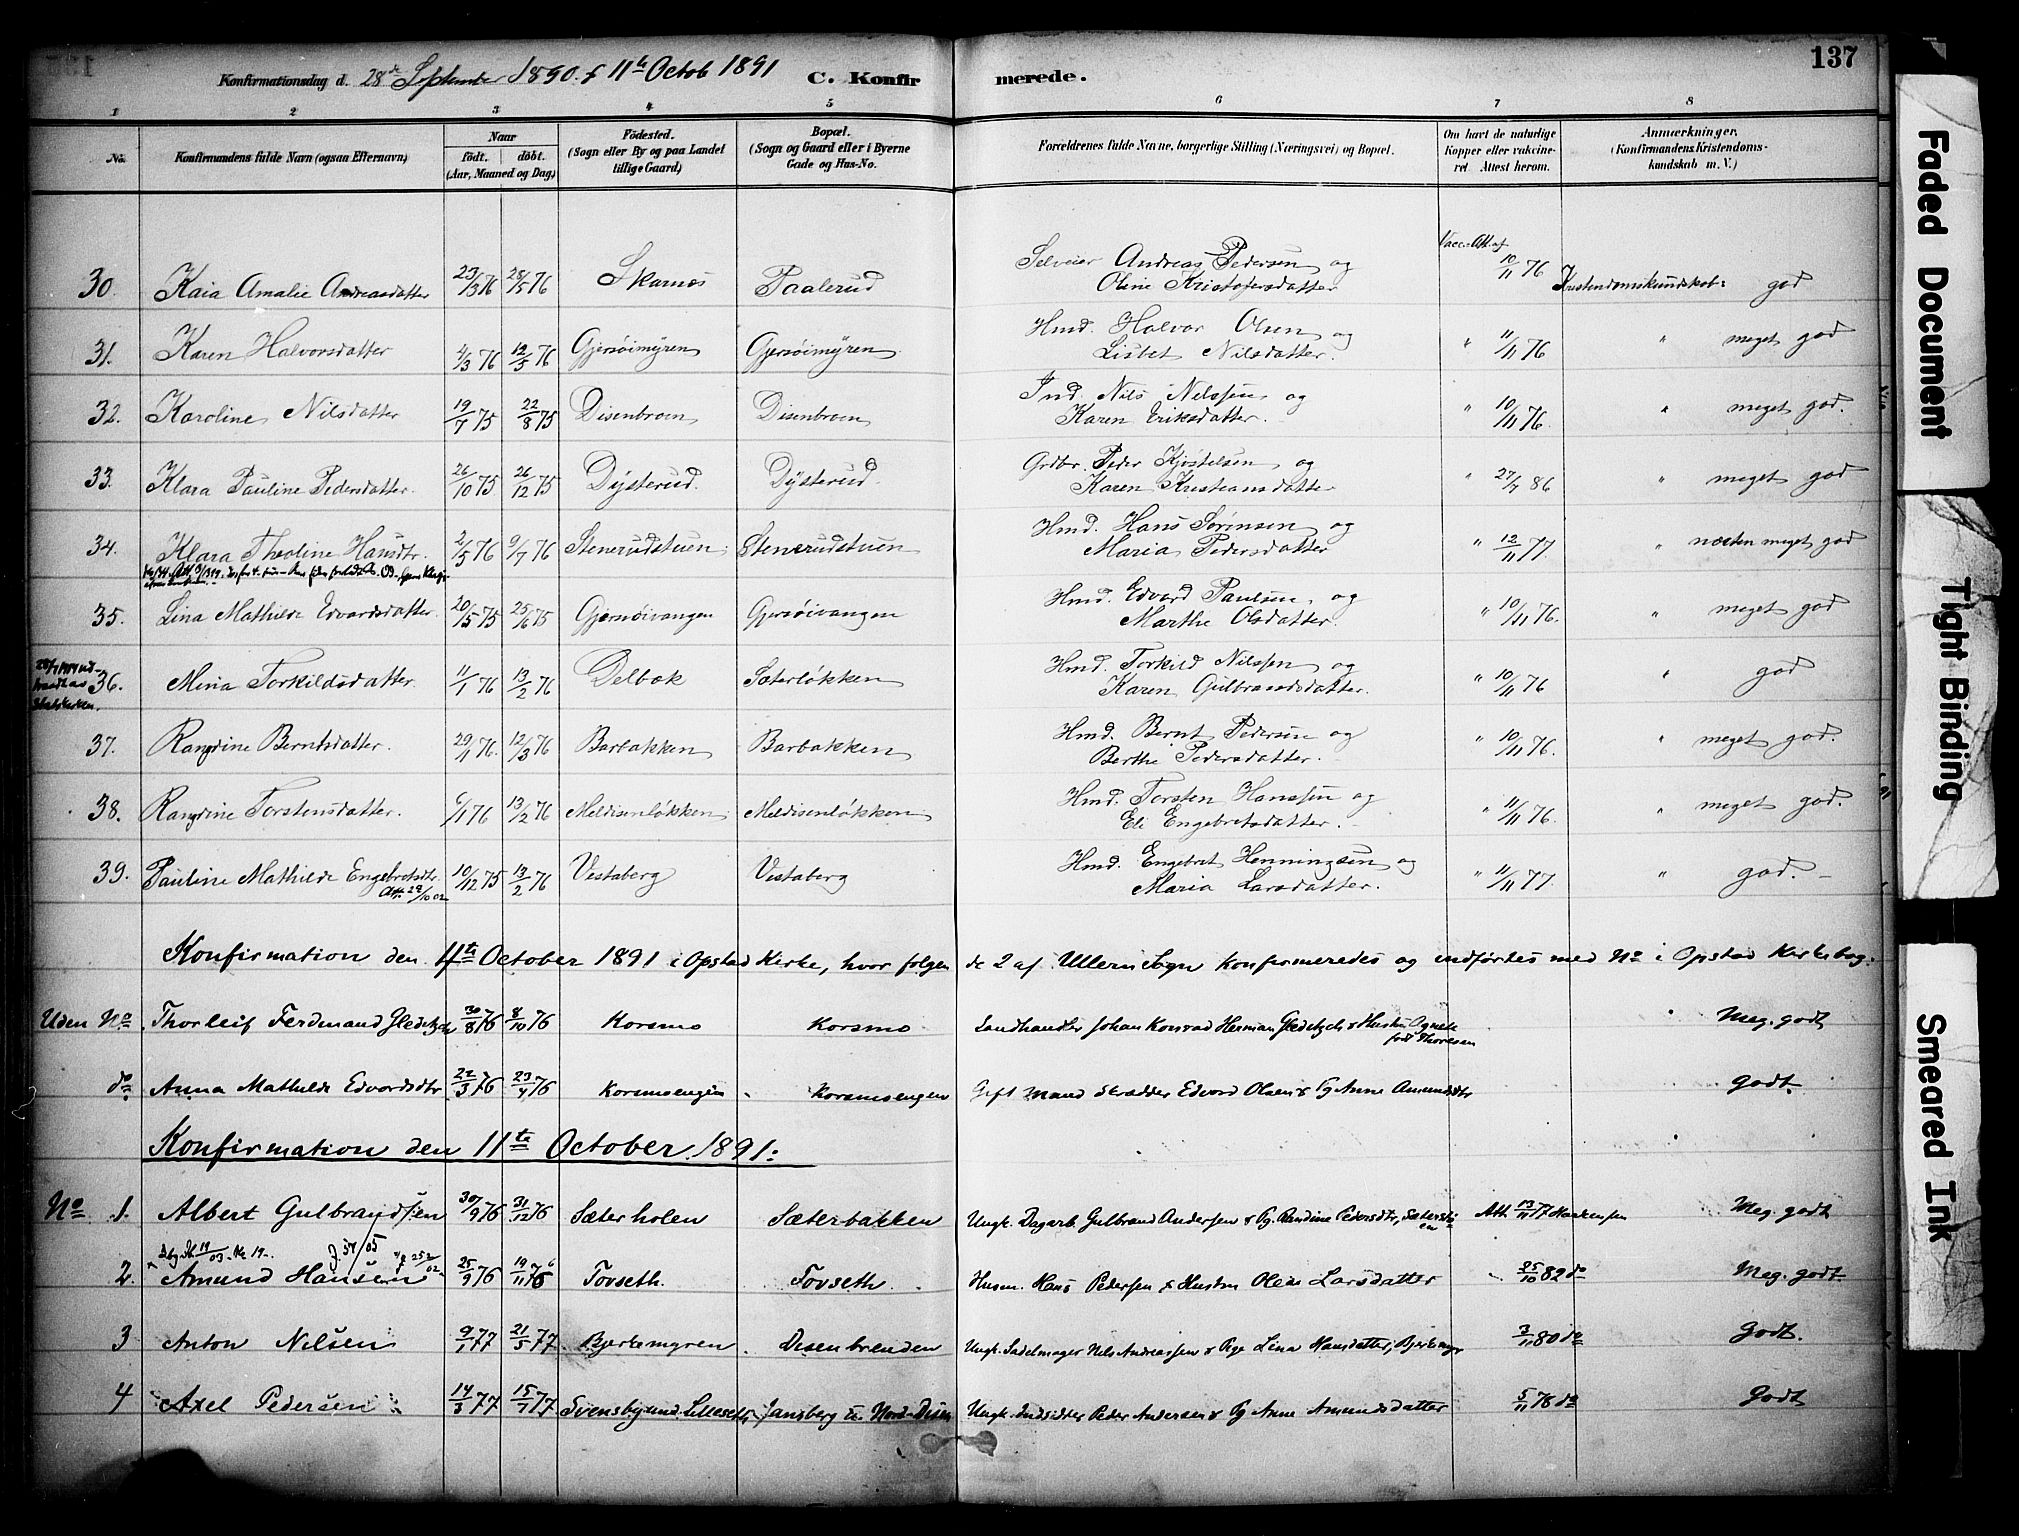 137
Konfirmationsdag d. 28de September 1890. & 11te Octob 1891 C. Konfirmerede.
1 2 3 4 5 6 7 8
No. Konfirmandens fulde Navn (ogsaa Efternavn) Naar födt. döbt. (Aar, Maaned og Dag) Födested. (Sogn eller By og paa Landet tillige Gaard) Bopæl. (Sogn og Gaard eller i Byerne Gade og Hus-No. Forældrenes fulde Navne, borgerlige Stilling (Næringsvei) og Bopæl. Om havt de naturlige Kopper eller vakcineret. Attest herom. Anmærkninger. (Konfirmandens Kristendomskundskab m. V.)
30. Kaia Amalie Andreasdatter 23/3 76 28/5 76 Skarnes Paalerud Selveier Andreas Pedersen og Oline Kristofersdatter Vacc. Att. af 10/11 76 Kristendomskundskab: god
31. Karen Halvorsdatter 4/3 76 12/5 76 Gjersöimyren Gjersöimyren Hmd. Halvor Olsen og Lisbet Nilsdatter. " 11/11 76 " meget god
32. Karoline Nilsdatter 19/7 75 22/8 75 Disenbroen Disenbroen Ind. Nils Nilssen og Karen Eriksdatter. " 10/11 76. " meget god.
33. Klara Pauline Pedersdatter. 26/10 75 26/12 75 Dysterud. Dysterud. Grdbr. Peder Kjöstelsen og Karen Kristiansdatter " 27/7 86 " meget god
34. Klara Theoline Hansdtr. 2/5 76 9/7 76 Stenerudstuen Stenerudstuen Hmd. Hans Sörensen og Maria Pedersdatter " 12/11 77. " næsten meget god
35. Lina Mathilde Edvardsdatter. 20/5 75 25/6 75 Gjersöivangen Gjersöivangen Hmd. Edvard Paulsen og Marthe Olsdatter. " 10/11 76. " meget god
36. Mina Torkildsdatter. 11/1 76 13/2 76 Delbak Sæterløkken Hmd. Torkild Nilssen og Karen Gulbrandsdatter. " 10/11 76 " god
37. Rangdine Berntsdatter. 29/1 76. 12/3 76 Barbakken Barbakken Hmd. Bernt Pedersen og Berthe Pedersdatter. " 10/11 76. " meget god.
38. Rangdine Torstensdatter. 6/1 76 13/2 76 Meldisenløkken Meldisenløkken Hmd. Torsten Hanssen og Eli Engebretsdatter. " 11/11 76. " meget god.
39. Pauline Mathilde Engebretsdtr. 10/12 75 13/2 76 Vestaberg Vestaberg Hmd. Engebret Henningsen og Maria Larsdatter. " 11/11 77. " god.
Att. 28/10 02
Konfirmation den 4te October 1891 i Opstad Kirke, hvor følgende 2 af Ullern Sogn konfirmeredes og indførtes med No i Opstad Kirkebog:
Uden No Thorleif Ferdinand Gleditsch 30/8 76 8/10 76 Korsmo Korsmo Landhandler Johan Konrad Herman Gleditsch & Hustru Agnete født Thoresen Meg. godt
do Anna Mathilde Edvardsdtr 22/3 76 23/4 76 Korsmoengen Korsmoengen Gift Mand Skrædder Edvard Olsen & Pg Anne Amundsdtr Godt.
Konfirmation den 11te October 1891:
No 1. Albert Gulbrandsen 30/9 76 31/12 76 Sæterholen Sæterbakken Ungk. Dagarb. Gulbrand Andersen & Pg. Randine Pedersdtr, Att. 13/11 77 Haakensen Meg. godt
2. Amund Hansen 25/9 76 19/11 76 Tovseth. Tovseth. Husm. Hans Pedersen & Hustru Oline Larsdatter 25/10 82 do Meg. godt
3 Anton Nilsen 9/1 77 21/5 77 Bjerkemyren. Disenbrenden Ungk. Sadelmager Nils Andreassen & Pige Lina Hansdatter, 3/11 80 do Godt.
4 Axel Pedersen 14/3 77 15/7 77 Svensby und. Lilleseth Jansberg u. Nord-Disen Ungk. Indsidder Peder Andersen & Pg Anne Amundsdatter 5/11 78 do Godt
Faded Document
Tight Binding
Smeared Ink